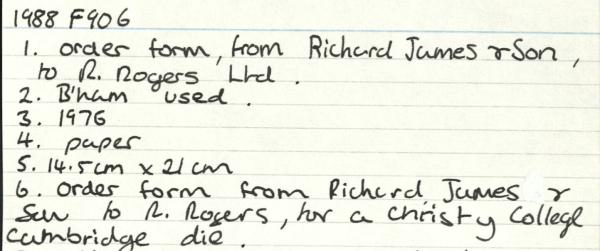 1988 F906
1. order form, from Richard James & Son,
to R. Rogers Ltd.
2. B'ham used.
3. 1976
4. paper
5. 14.5cm x 21cm
6. order form from Richard James &
Son to R. Rogers, for a Christy College
Cambridge die.